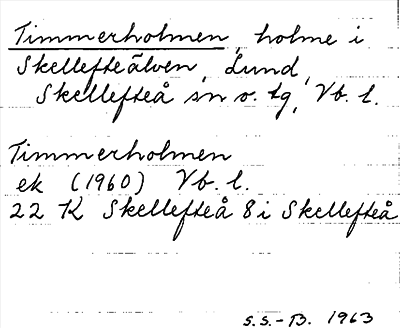 Timmerholmen, holme i
Skellefteälven, Lund,
Skellefteå sn o. tg, Vb. l.
Timmerholmen
ek (1960) Vb. l.
22 K Skellefteå 8 i Skellefteå
S.S.-B. 1963